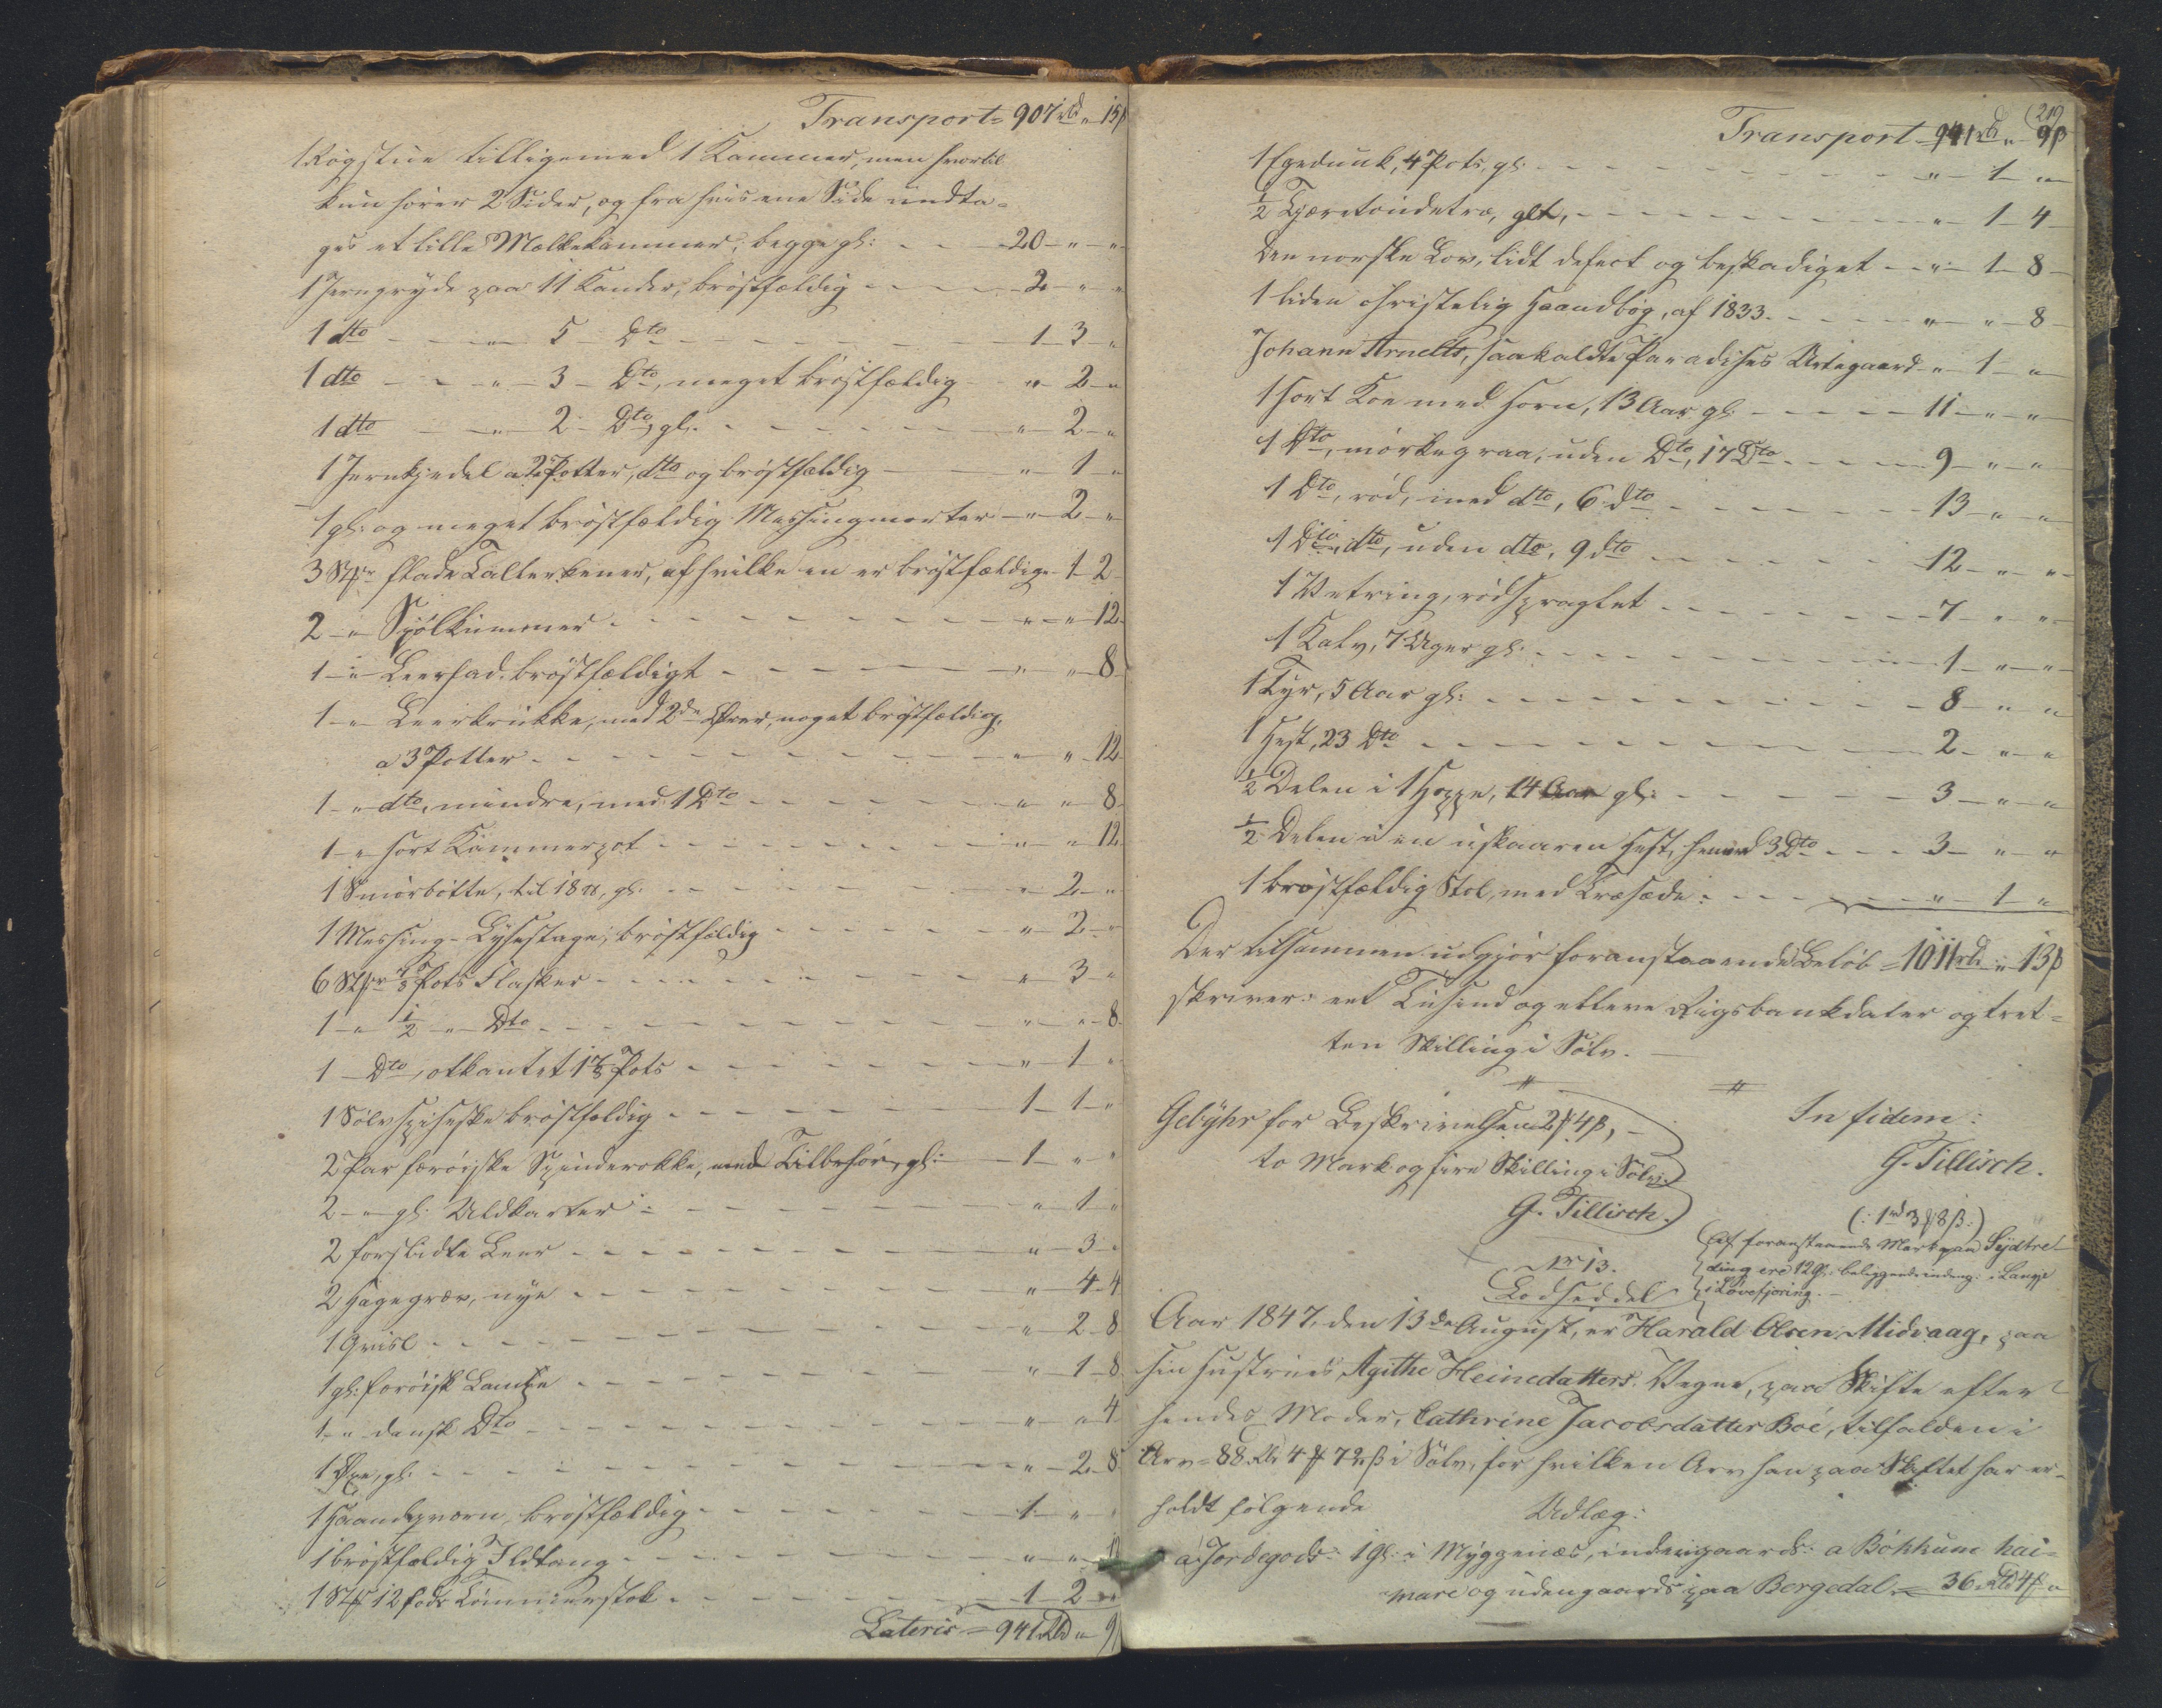 Transport = 907 rbd " 15 ß
1 Røgstue tilligemed 1 Kammer, men hvortil
kun hører 2 Sider, og fra hvis ene Side undta-
ges et lille Mælkekammer, begge gl: - - 20 - " - "
1 Jerngryde paa 11 Kander, brøstfældig - - - 2 - " - "
1 dto - - " - 5 - Dto - - - 1 - 3 - "
1 dto - - " - 3 - Dto, meget brøstfældig - - " - 2 - "
1 dto - - " - 2 - Dto, gl. - - - " - 2 - "
1 Jernkjedel a 2 Potter, dto og brøstfældig - - " - 1 - "
1 gl: og meget brøstfældig Messingmorter - " - 2 - "
3 Stkr flade Tallerkener, af hvilke en er brøstfældig - 1 - 2
2 - " - Spølkummer - - - " - " - 12
1 - " - Leerfad, brøstfældigt - - - " - " - 8
1 - " - Leerkrukke, med 2de Ører, noget brøstfældig,
a 3 Potter - - - " - " - 12
1 - " - dto, mindre, med 1 Dto - - - " - " - 8
1 - " - sort Kammerpot - - - " - " - 12
1 Smørbøtte, til 18 ℔, gl. - - - " - 2 - "
1 Messing-Lysestage, brøstfældig - - - " - 2 - "
6 Stkr Pots Flasker - - - " - 3 - "
1 - " - 1/2 - " - Dto - - - " - " - 8
1 - Dto, otkantet Pots - - - " - 1 - "
1 Sølvspiseske brøstfældig - - - 1 - 1 - "
2 Par færøiske Spinderokke, med Tilbehør, gl: - 1 - " - "
2 - " - gl: Uldkarter - - - " - 1 - "
2 forslidte Leer - - - " - 3 - "
2 Hagegrev, nye - - - " - 4 - 4
1 Grisl - - - " - 2 - 8
1 gl: færøisk Lampe - - - " - 1 - 8
1 - " - dansk Dto - - - " - " - 4
1 Øxe, gl. - - - " - 2 - 8
1 Haandqværn, brøstfældig - - - 1 - " - "
1 brøstfældig Ildtang - - - " - "
1 Stk 12 Fods Tømmerstok - - - 1 - 2 - "
Lateris = 941 Rbd " 9
219
Transport 941 rbd " 9 ß
1 Egedunk, 4 Pots, gl: - - - " - 1 - "
1/2 Tjæretøndetræ, glt, - - - " - 1 - 4
Den norske Lov, lidt defect og beskadiget - - " - 1 - 8
1 liden christelig Haandbog, af 1833 - - - " - " - 8
Johann Arnclts, saakaldte Paradises Urtegaard - " - 1 - "
1 sort Koe med Horn, 13 Aar gl: - - - 11 - " - "
1 Dto, mørkegraa, uden Dto, 17 Dto - - - 9 - " - "
1 Dto, rød, med dto, 6 dto - - - 13 - " - "
1 Dto, dto, uden dto, 9 dto - - - 12 - " - "
1 Vetring, rødspraglet - - - 7 - " - "
1 Kalv, 7 Uger gl: - - - 1 - " - "
1 Tyr, 5 Aar gl: - - - 8 - " - "
1 Hest, 23 Dto - - - 2 - " - "
1/2 Delen i 1 Hoppe, 14 Aar gl: - - - 3 - " - "
1/2 Delen i en uskaaren Hest, henved 3 Dto - - - 3 - " - "
1 brøstfældig Stol, med Træsæde - - - " - 1 - "
Der tilsammen udgjør foranstaaende Beløb = 1011 rbd " 13 ß
skriver: eet Tusind og elleve Rigsbankdaler og tret-
ten Skilling i Sølv. -
Gebyhr for Beskrivelsen 2 ₰ 4 ß, -
to Mark og fire Skilling i Sølv.
G. Tillisch.
In fidem:
G. Tillisch.
(: 1 rd 3 ₰ 8 ß :)
Af foranstaaende Mark paa Sydtre-
ding ere 12 Gl: beliggende indeng: i Lange
i Løvefjøring. -
Nr 13.
Lodseddel
Aar 1847, den 13de August, er Harald Olsen Midvaag, paa
sin Hustrues Agithe Heinedatters Vegne, paa Skifte efter
hendes Moder, Cathrine Jacobsdatter Boë, tilfalden i
Arv = 88 Rbd 4 ₰ 7 ß i Sølv, for hvilken Arv han paa Skiftet har er-
holdt følgende Udlæg:
a, Jordegods: 1 gl: i Myggenæs, indengaards: a Bökkum hai-
mare og udengaards paa Bergedal = 36 Rbd 4 ₰ "